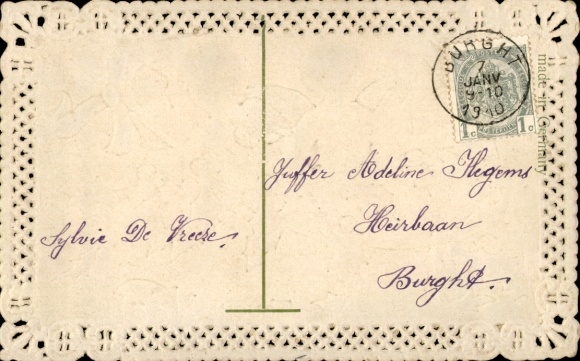 BURGHT
7
JANV
9-10
1910
1c 1c
made in Germany
Juffer Adeline Stegems
Heirbaan
Burght.
Sylvie De Vreese.